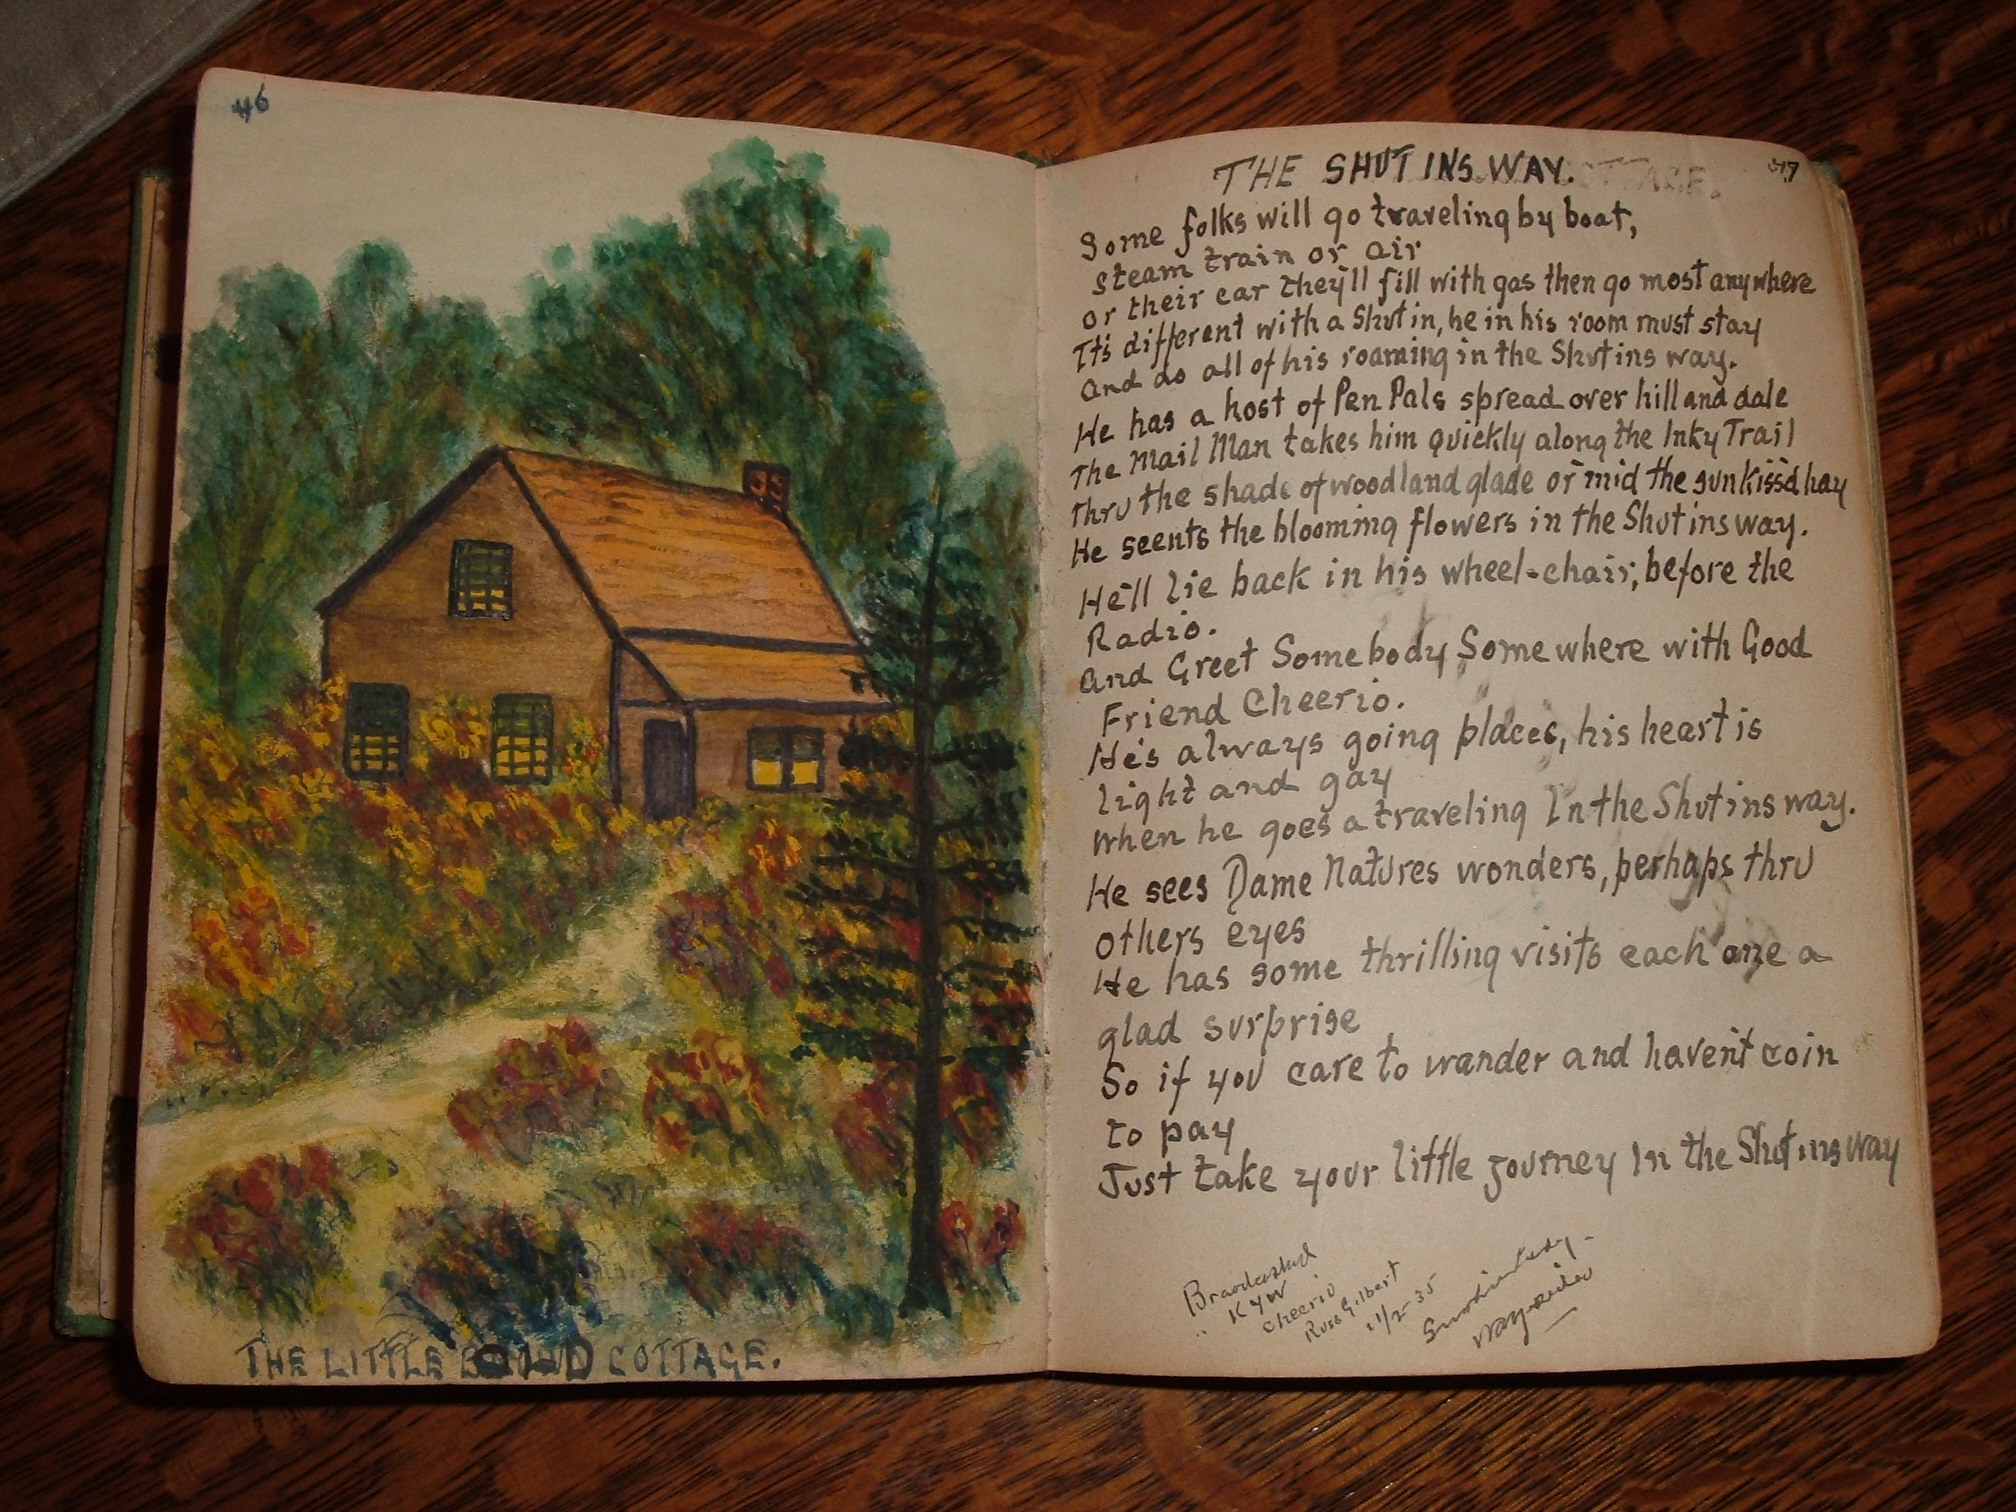 46
THE LITTLE OLD COTTAGE.
47
THE SHUT INS WAY.
Some folks will go traveling by boat,
steam train or air
or their car they'll fill with gas then go most anywhere
It's different with a Shut in, he in his room must stay
and do all of his roaming in the Shut ins way.
He has a host of Pen Pals spread over hill and dale
The Mail Man takes him quickly along the Inky Trail
thru the shade of woodland glade or mid the sunkiss'd hay
He scents the blooming flowers in the Shut ins way.
He'll lie back in his wheel-chair, before the
Radio.
and Greet Somebody Somewhere with Good
Friend Cheerio.
He's always going places, his heart is
light and gay
when he goes a traveling In the Shut ins way.
He sees Dame Natures wonders, perhaps thru
others eyes
He has some thrilling visits each one a
glad surprise
So if you care to wander and havent coin
to pay
Just take your little journey In the Shut ins way
Broadcasted
" KYW
Cheerio
Russ Gilbert
11/2-35